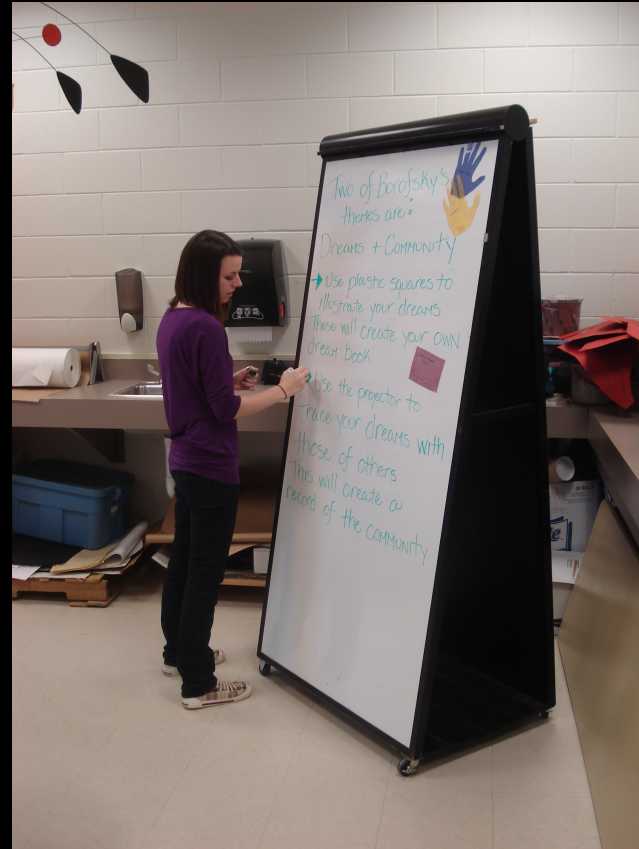 Two of Borofsky's
themes are:
Dreams + Community
Use plastic squares to
illustrate your dreams
These will create your own
dream book
Use the projector to
Trace your dreams with
those of others
This will create a
record of the community